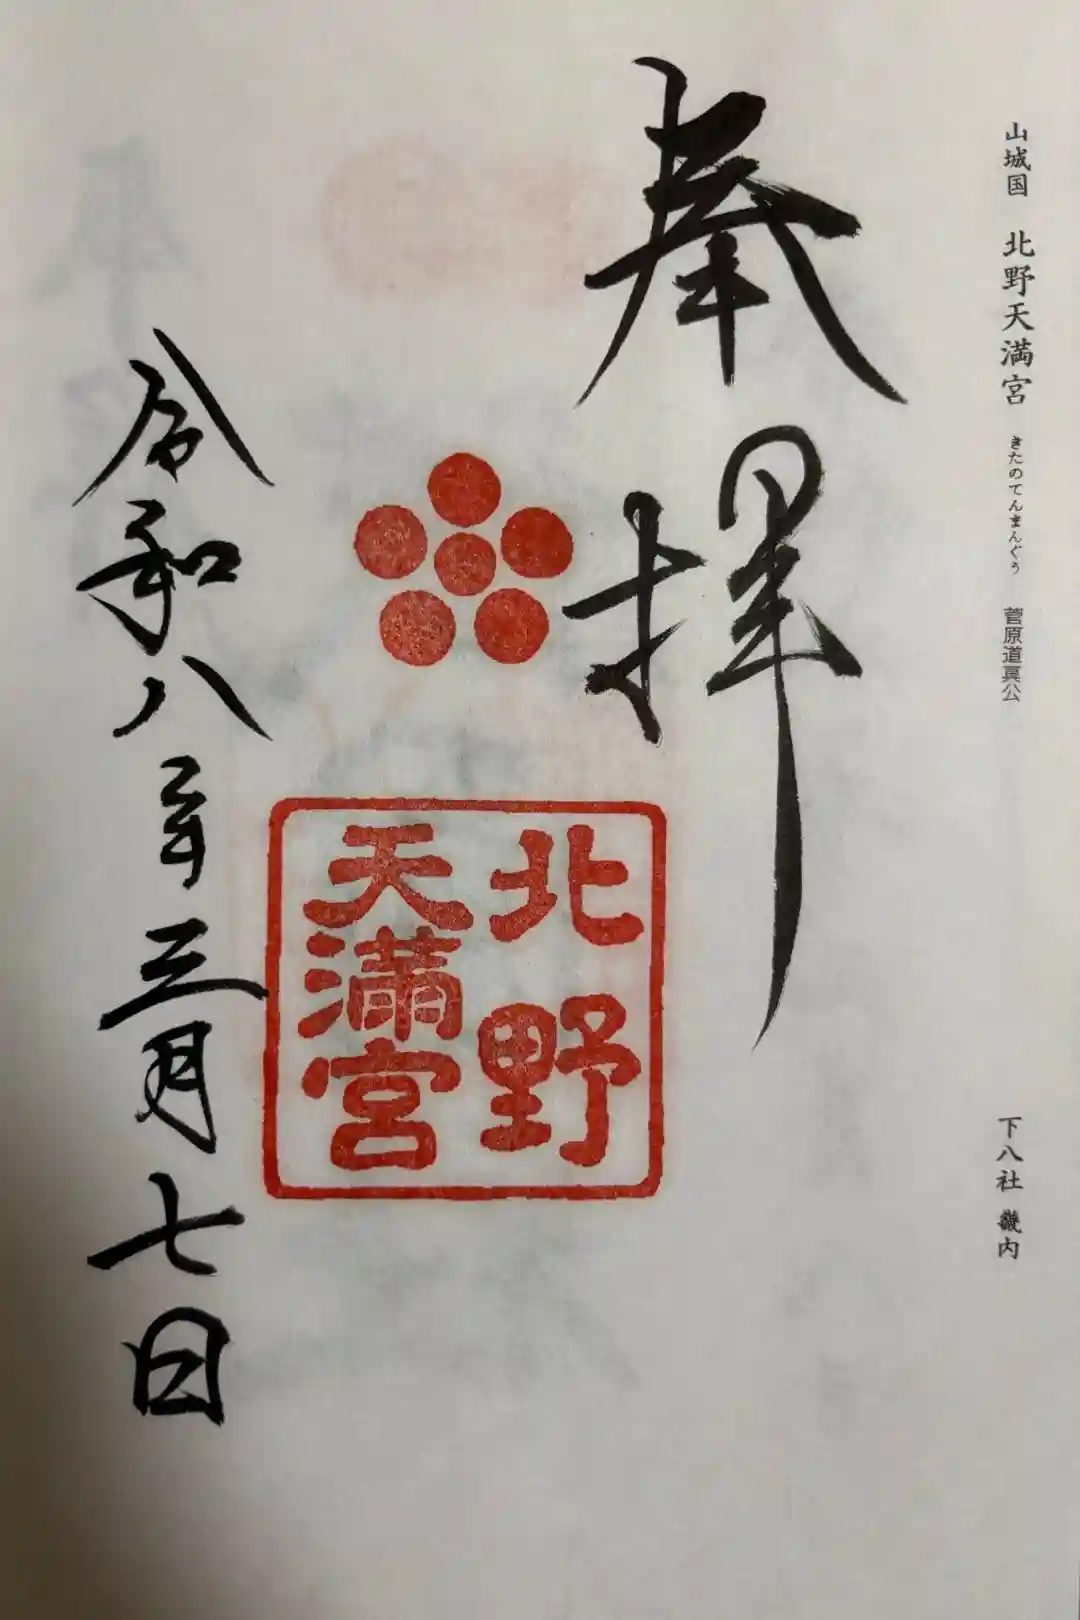 山城国 北野天満宮 きたのてんまんぐう 菅原道真公
下八社 畿内
奉拝
北野
天満宮
令和八年三月七日